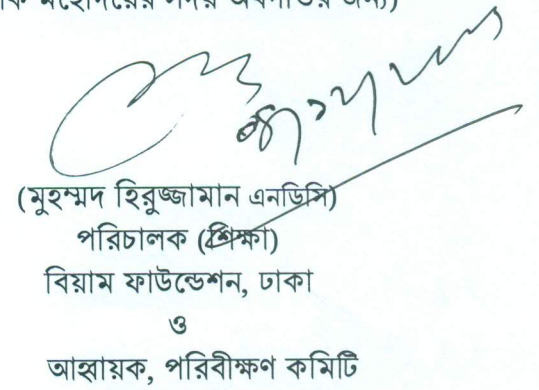 মহোদয়ের সদয় অবগতির জন্য)
(মুহম্মদ হিরুজ্জামান এনডিসি)
পরিচালক (শিক্ষা)
বিয়াম ফাউন্ডেশন, ঢাকা
ও
আহ্বায়ক, পরিবীক্ষণ কমিটি